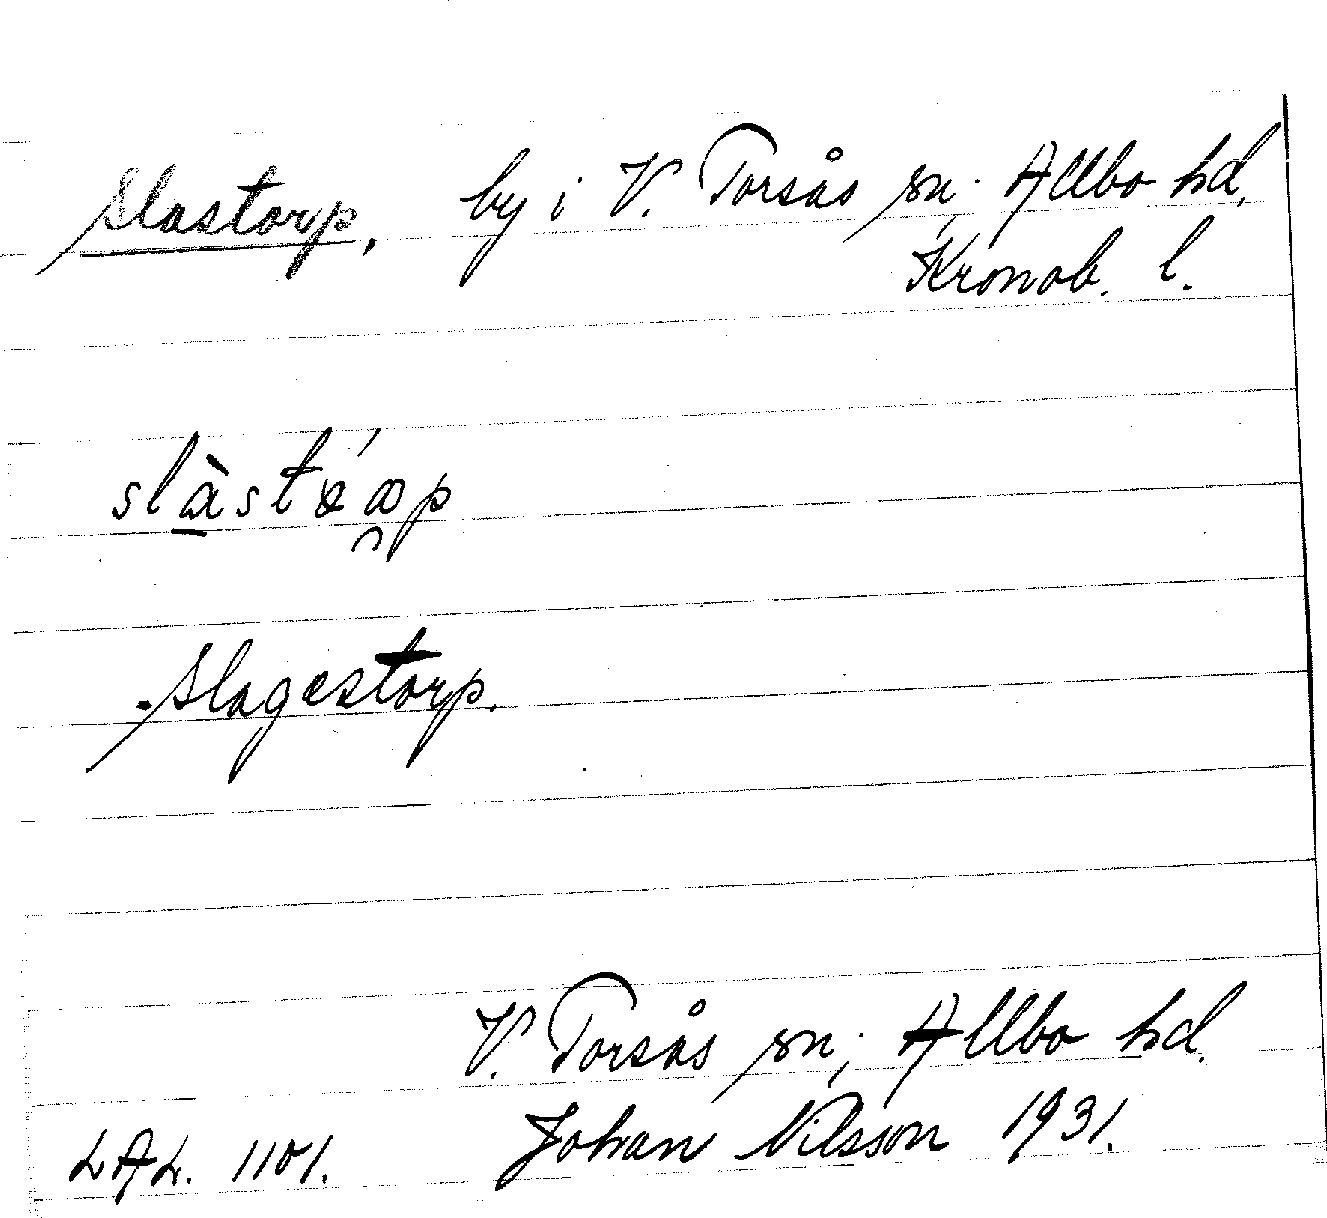 Slastorp, by i V. Torsås sn; Allbo hd,
Kronob. l.
Slagestorp.
V. Torsås sn; Allbo hd.
LAL. 1101. Johan Nilsson 1931.